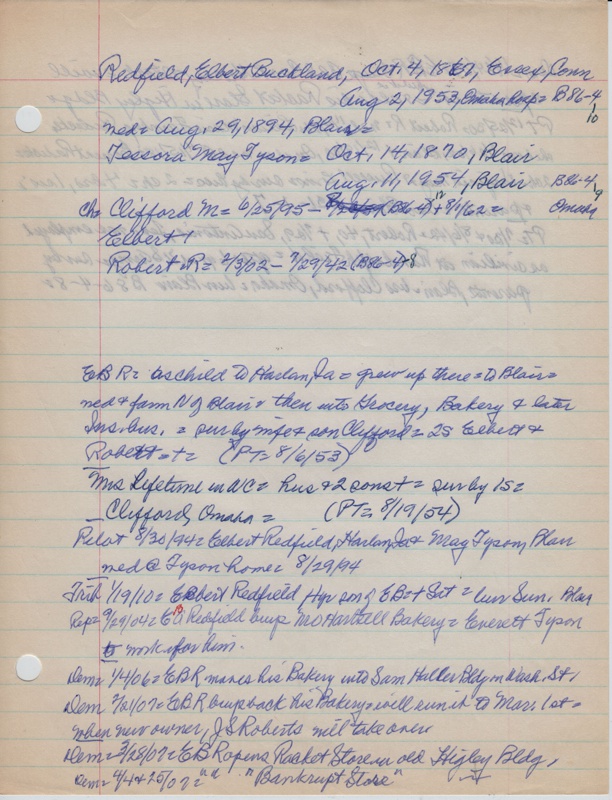 Redfield, Elbert Buckland, Oct. 4, 1867, Essex, Conn
Aug 2, 1953, Omaha Hosp = B86-4
10
med = Aug. 29, 1894, Blair =
Tessora May Tyson = Oct. 14, 1870, Blair
Aug. 11, 1954, Blair B86-4,
9
ch = Clifford M = 6/25/95 - (B86-4) 12 + 8/1/62 = Omaha
Elbert
Robert R = 2/3/02 - 7/29/42 (B86-4) 8
EBR = as child to Harlan, Ia = grew up there = to Blair =
med & farm N of Blair & then into Grocery, Bakery & later
Ins. bus. = sur by wife & son Clifford = 2S Elbert &
Robert = + = (PT = 8/6/53)
Mrs Lifetime in WC = hus & 2 sons + = sur by 1S =
Clifford, Omaha = (PT = 8/19/54)
Pilot 8/30/94 = Elbert Redfield, Harlan, Ia & May Tyson, Blair
med @ Tyson home = 8/29/94
Trib 1/19/10 = Elbert Redfield, 4 yr son of EB = + Sat = bur Sun. Blair
Rep = 9/29/04 = EB Redfield buys Hartzell Bakery = Everett Tyson
to work for him.
Dem = 1/4/06 = EBR moves his Bakery into Sam Haller Bldg on Wash. St.
Dem 2/21/07 = EBR buys back his Bakery = will run it to Mar. 1st =
when new owner, J S Roberts will take over
Dem = 3/28/07 = EBR opens Racket Store in old Higley Bldg.
Dem = 4/4 & 25/07 = " " "Bankrupt Store"